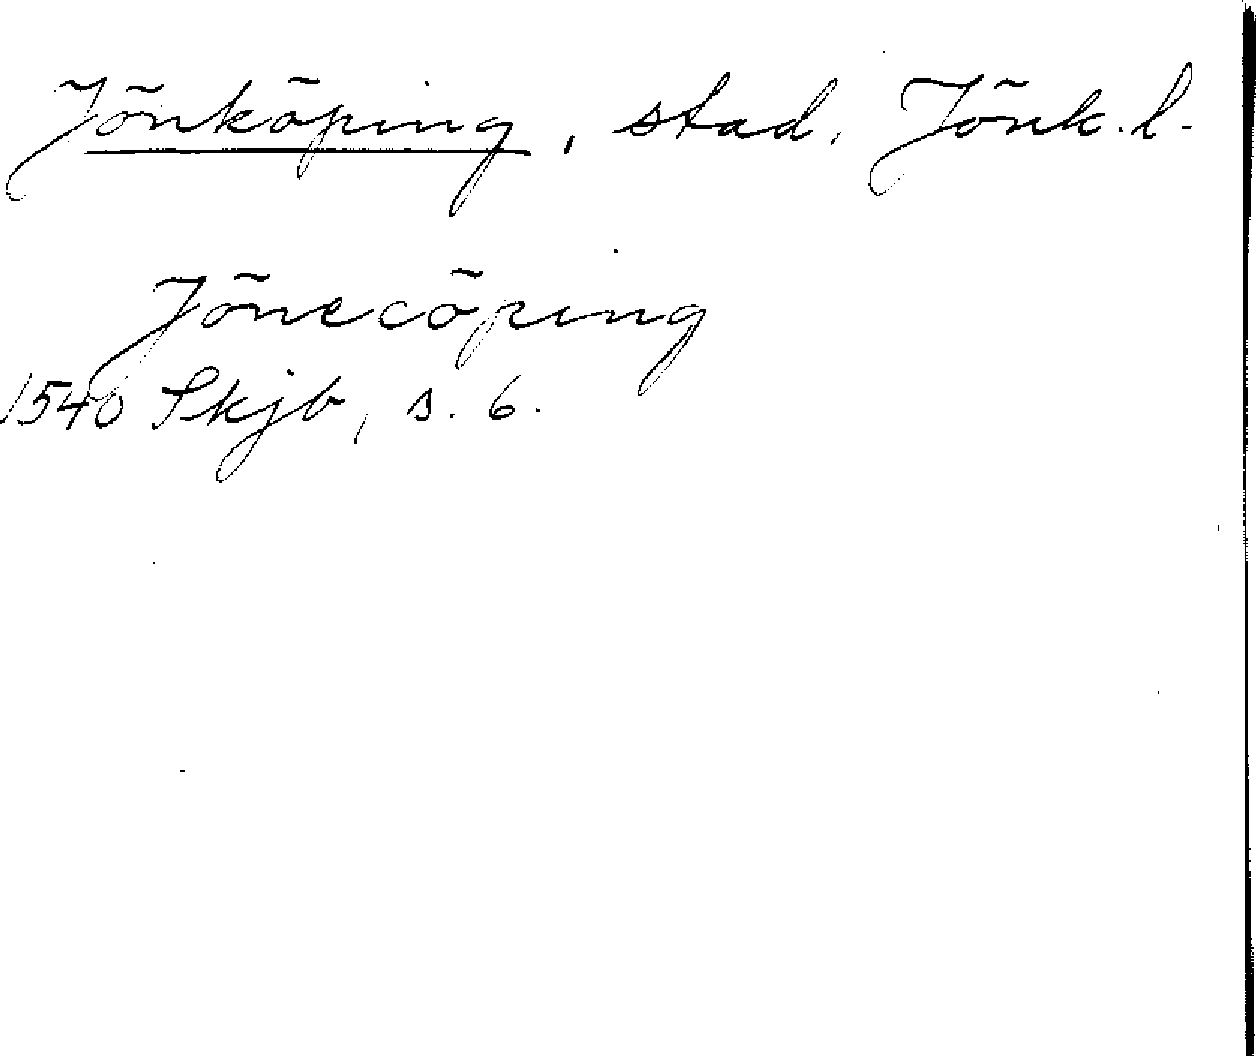 Jönköping, stad, Jönk. l.
Jönecöping
1540 Skjb, s. 6.